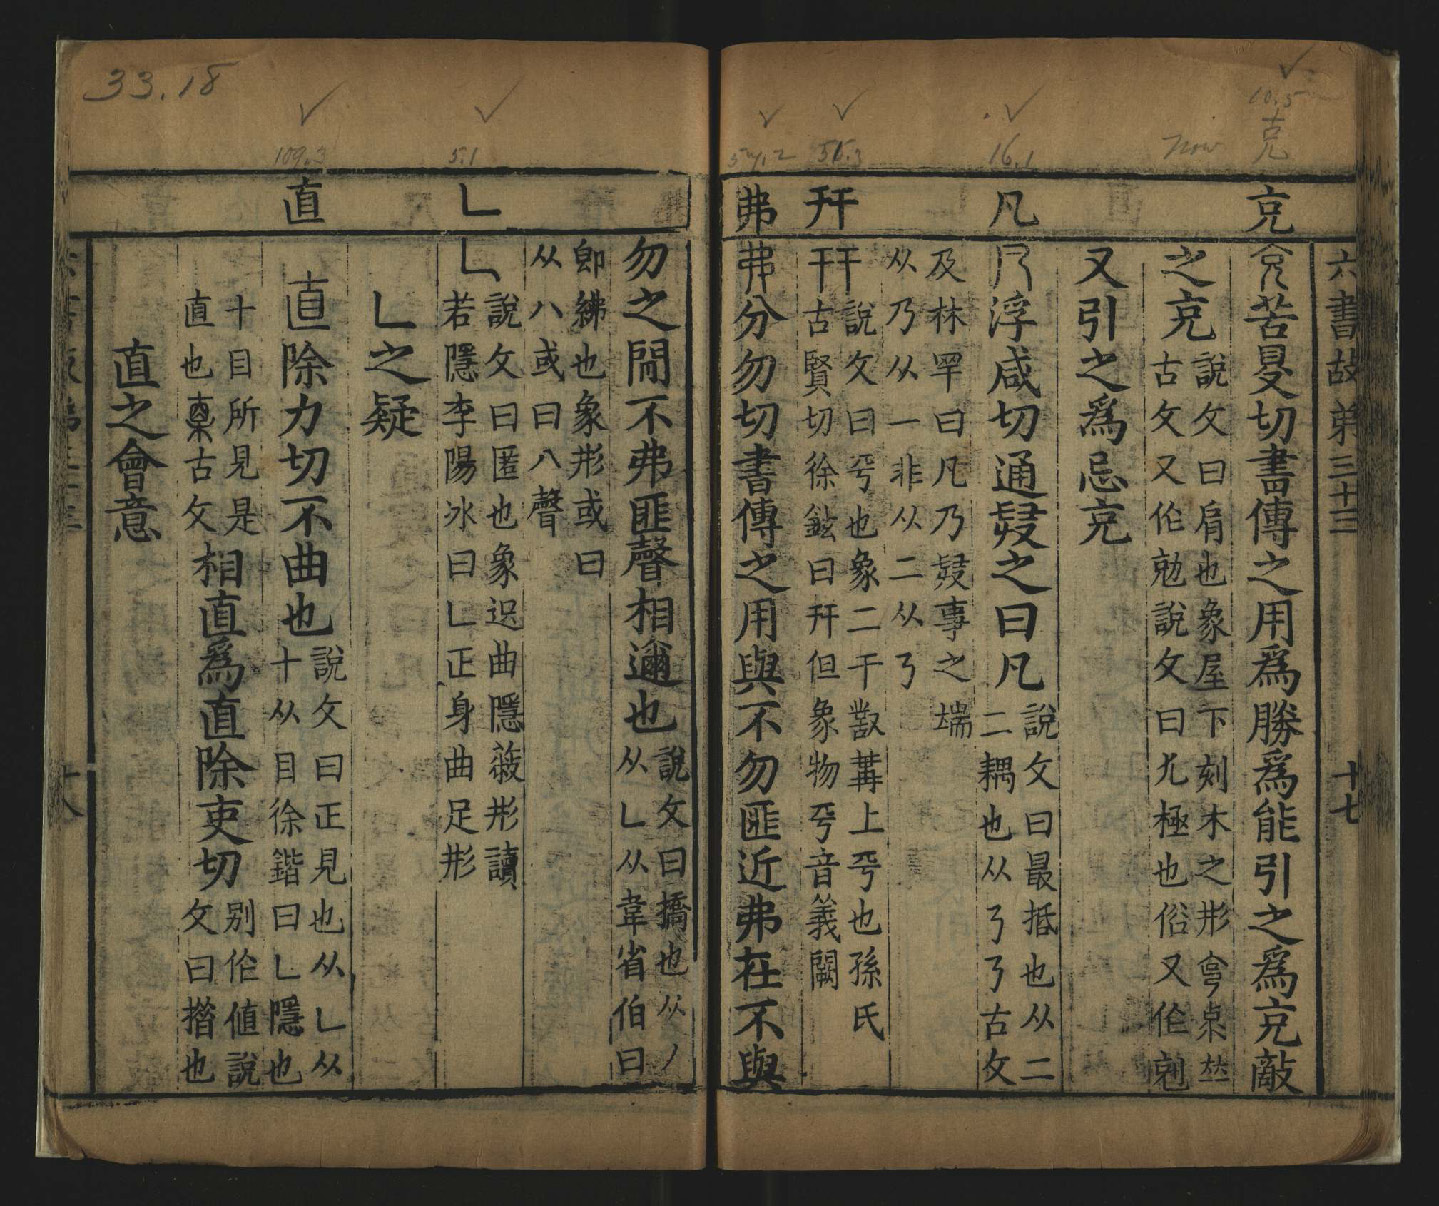 33.18
10.5
克
now
16.1
56.3
57.2
5.1
109.3
克
凡
幵
弗
乚
直
六書故弟三十三
十七
苦㫗切書傳之用爲勝爲能引之爲克敵
之克
說文曰肩也象屋下刻木之形
古文又作勊說文曰尤極也俗又作剋
又引之爲忌克
浮咸切通發之曰凡
說文曰最括也从二
二耦也从乃乃古文
及林罕曰凡乃發事之耑
从乃从一非从二从乃
幵
說文曰平也象二干對冓上平也孫氏
古賢切徐鉉曰幵但象物平音義闕
弗分勿切書傳之用與不勿匪近弗在不與
勿之閒不弗匪聲相邇也
說文曰撟也从丿
从乚从韋省伯曰
卽紼也象形或曰
从八或曰八聲
乚
說文曰匿也象迟曲隱蔽形讀
若隱李陽冰曰乚正身曲足形
乚之疑
直除力切不曲也
說文曰正見也从乚从
十从目徐鍇曰乚隱也
十目所見是
直也㮨古文
相直爲直除吏切
别作値說
文曰措也
直之會意
十八